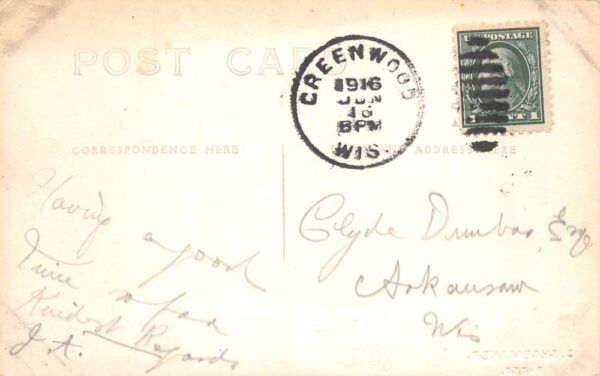 POST CARD
GREENWOOD
1916
JUN
16
8PM
WIS.
U.S. POSTAGE
1 CENT 1
CORRESPONDENCE HERE
ADDRESS HERE
Having a good
time so far
Kindest Regards
J.A.
Clyde Dunbar Esq
Arkansaw
Wis